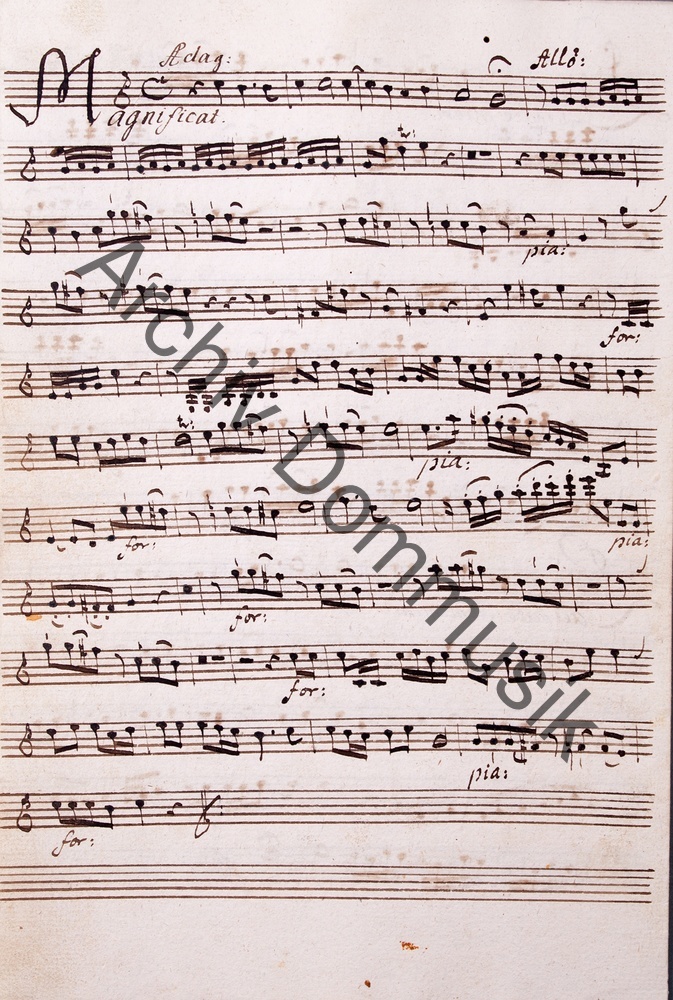 Adag: Allo:
Magnificat.
tr:
pia:
for:
tr:
pia:
for: pia:
for:
for:
pia:
for:
Archiv Dommusik